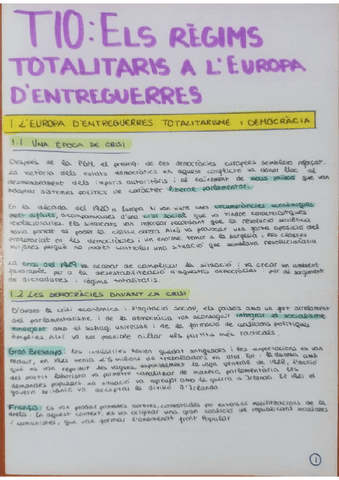 T10: ELS RÈGIMS
TOTALITARIS A L'EUROPA
D'ENTREGUERRES
1. L'EUROPA D'ENTREGUERRES TOTALITARISME I DEMOCRÀCIA
1.1 UNA ÈPOCA DE CRISI
Després de la PGM, el prestigi de les democràcies europees semblava reforçat.
La victòria dels estats democràtics en aquest conflicte va donar lloc al
desmembrament dels imperis autoritaris i al naixement de nous països que van
adoptar sistemes polítics de caràcter liberal parlamentari.
En la dècada del 1920 a Europa hi van viure unes circumstàncies econòmiques
molt difícils, acompanyades d'una crisi social que va tindre característiques
revolucionàries. Els sindicats van intentar que la revolució soviètica
havia portat al poder la classe obrera. Això va provocar una forta oposició del
proletariat en les democràcies i un enorme temor a la burgesia i les classes
mitjanes perquè no volien una situació que semblava revolucionària
La crisi del 1929 va acabar de complicar la situació i va crear un ambient
favorable per a la desestabilització d'aquestes democràcies i per al sorgiment
de dictadures i règims totalitaris.
1.2 LES DEMOCRÀCIES DAVANT LA CRISI
D'avant la crisi econòmica i l'agitació social, els països amb un fort arrelament
del parlamentarisme i de la democràcia van aconseguir integrar el socialisme
emergent amb el sufragi universal i de la formació de coalicions polítiques
àmplies. Així va ser possible aïllar els partits més radicals.
Gran Bretanya: Les indústries havien quedat antiquades i les exportacions es van
reduir, en 1921 tenia 2 milions de treballadors en atur
que es van repetir les vagues, especialment la vaga general de 1926, l'acció
del partit laborista va permetre canalitzar de manera parlamentària les
demandes populars. La situació va agreujar amb la guerra a Irlanda. El 1921 el
govern britànic va acceptar la divisió d'Irlanda.
França: Es van produir protestes obreres, contestades per extenses mobilitzacions de la
dreta. En aquest context, es va originar una gran coalició de republicans socialistes
i comunistes, que van formar l'anomenat Front Popular
1